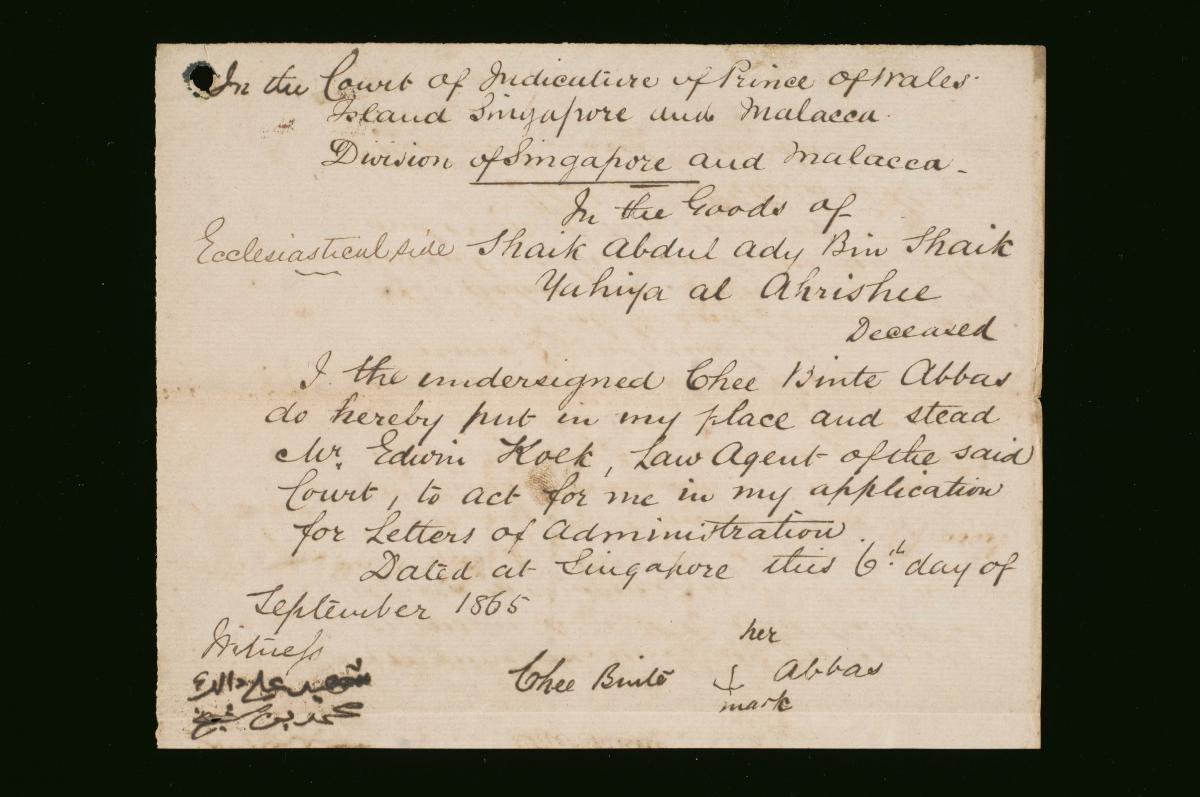 In the Court of Judicature of Prince of Wales
Island Singapore and Malacca
Division of Singapore and Malacca
In the Goods of
Ecclesiastical side Shaik Abdul ady Bin Shaik
Yahiya al Ahrishee
Deceased
I the undersigned Chee Binte Abbas
do hereby put in my place and stead
Mr. Edwin Koek, Law Agent of the said
Court, to act for me in my application
for Letters of Administration.
Dated at Singapore this 6th. day of
September 1865
Witness
her
Chee Binte Abbas
mark
محمد بن شيخ